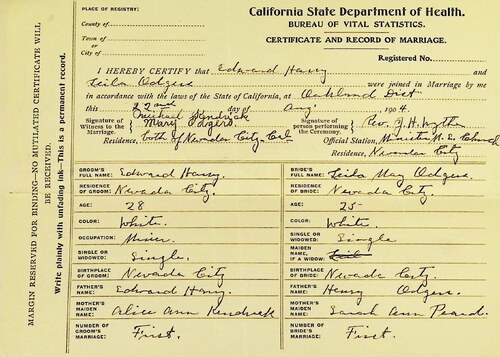 PLACE OF REGISTRY:
County of
Town of
or
City of
California State Department of Health.
BUREAU OF VITAL STATISTICS.
CERTIFICATE AND RECORD OF MARRIAGE.
Registered No.
I HEREBY CERTIFY that Edward Hany and
Leila Odgers were joined in Marriage by me
in accordance with the laws of the State of California, at Oakland Dist
this 22nd day of Aug. 1904.
Signature of Witness to the Marriage Michael Kendrick
Mary Odgers.
Signature of person performing the Ceremony. Rev. J. H.
Residence, both of Nevada City. Cal
Official Station, Minister M. E. Church
Residence, Nevada City
MARGIN RESERVED FOR BINDING—NO MUTILATED CERTIFICATE WILL BE RECEIVED.
Write plainly with unfading ink—This is a permanent record.
GROOM'S FULL NAME: Edward Hany.
RESIDENCE OF GROOM: Nevada City.
AGE: 28
COLOR: White.
OCCUPATION: Miner.
SINGLE OR WIDOWED: Single.
BIRTHPLACE OF GROOM: Nevada City
FATHER'S NAME: Edward Hany.
MOTHER'S MAIDEN NAME: Alice Ann Kendrick
NUMBER OF GROOM'S MARRIAGE: First.
BRIDE'S FULL NAME: Leila May Odgers.
RESIDENCE OF BRIDE: Nevada City.
AGE: 25
COLOR: White.
SINGLE OR WIDOWED: Single
MAIDEN NAME, IF A WIDOW:
BIRTHPLACE OF BRIDE: Nevada City.
FATHER'S NAME: Henry Odgers.
MOTHER'S MAIDEN NAME: Sarah Ann Peard.
NUMBER OF BRIDE'S MARRIAGE: First.